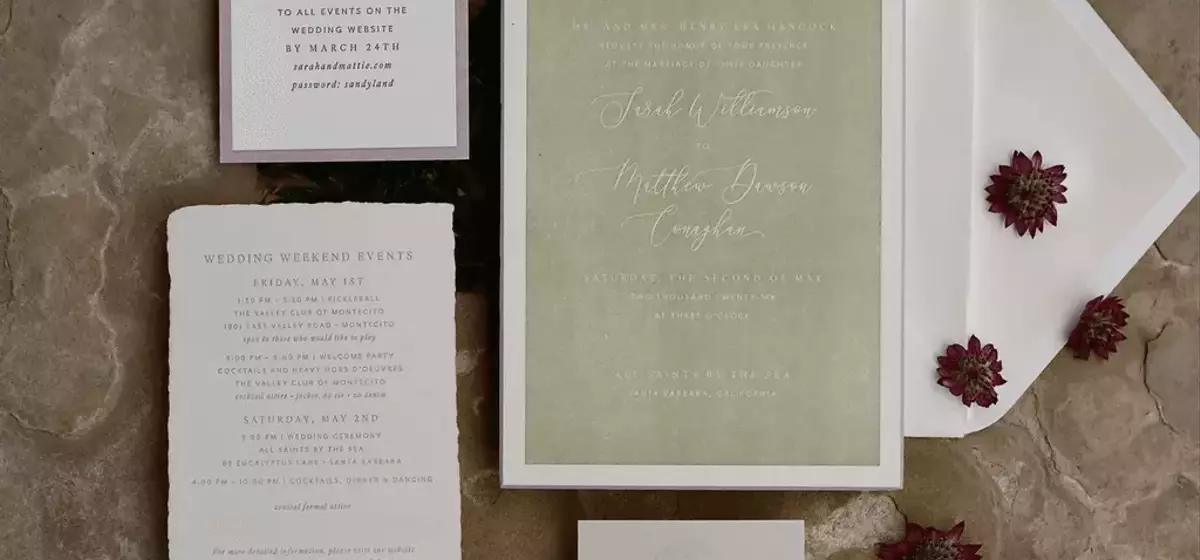 TO ALL EVENTS ON THE
WEDDING WEBSITE
BY MARCH 24TH
sarahandmattie.com
password: sandyland
MR. AND MRS. HENRY LEA HANCOCK
REQUEST THE HONOR OF YOUR PRESENCE
AT THE MARRIAGE OF THEIR DAUGHTER
Sarah Williamson
TO
Matthew Dawson
Conaghan
SATURDAY, THE SECOND OF MAY
TWO THOUSAND TWENTY-SIX
AT THREE O'CLOCK
ALL SAINTS BY THE SEA
SANTA BARBARA, CALIFORNIA
WEDDING WEEKEND EVENTS
FRIDAY, MAY 1ST
PICKLEBALL
THE VALLEY CLUB OF MONTECITO
1901 EAST VALLEY ROAD • MONTECITO
open to those who would like to play
WELCOME PARTY
COCKTAILS AND HEAVY HORS D'OEUVRES
THE VALLEY CLUB OF MONTECITO
cocktail attire • jacket, no tie • no denim
SATURDAY, MAY 2ND
3:00 PM | WEDDING CEREMONY
ALL SAINTS BY THE SEA
EUCALYPTUS LANE • SANTA BARBARA
4:00 PM – 10:00 PM | COCKTAILS, DINNER & DANCING
coastal formal attire
For more detailed information, please visit our website